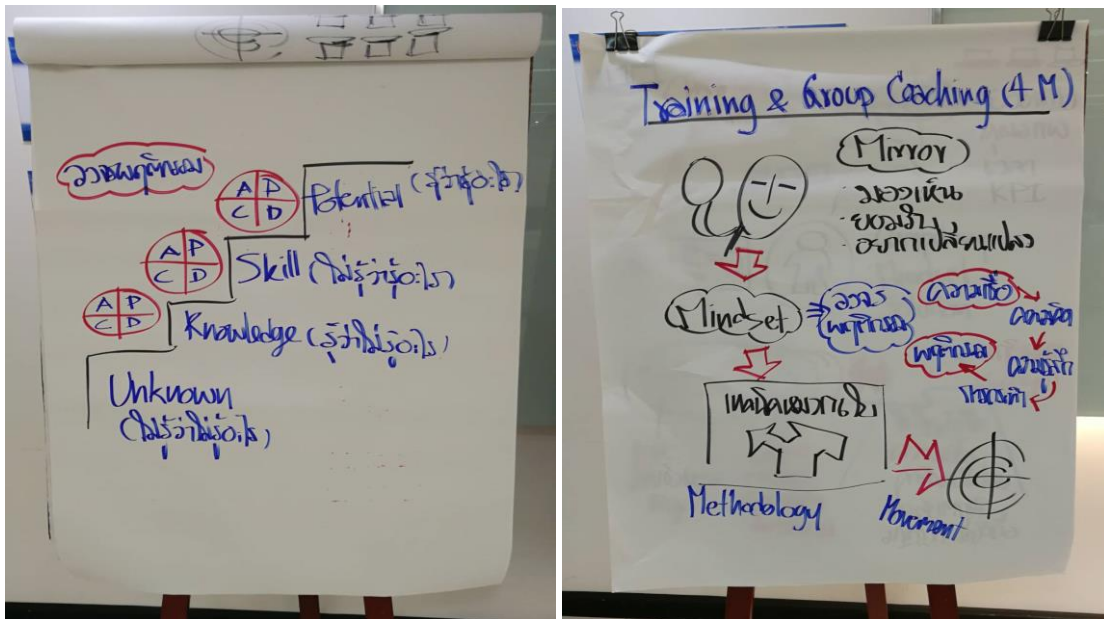 วงจรพฤติกรรม
A P
C D
Potential (รู้ว่ารู้อะไร)
A P
C D
Skill (ไม่รู้ว่ารู้อะไร)
A P
C D
Knowledge (รู้ว่าไม่รู้อะไร)
Unknown
(ไม่รู้ว่าไม่รู้อะไร)
Training & Group Coaching (4 M)
Mirror
· มองเห็น
· ยอมรับ
· อยากเปลี่ยนแปลง
Mindset
วงจร
พฤติกรรม
ความเชื่อ
ความคิด
ความรู้สึก
การกระทำ
พฤติกรรม
Methodology
Movement